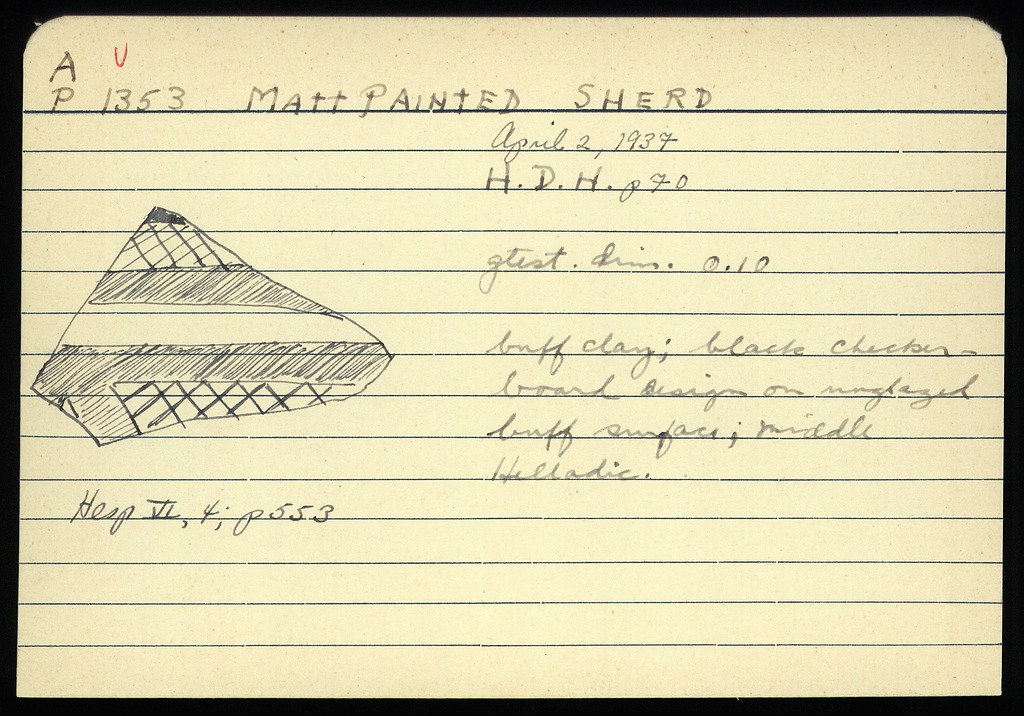 A U
P 1353 MATT PAINTED SHERD
April 2, 1937
H. D. H. p 70
gtest. dim. 0.10
buff clay; black checker-
board design on unglazed
buff surface; middle
Helladic.
Hesp VI, 4; p 553